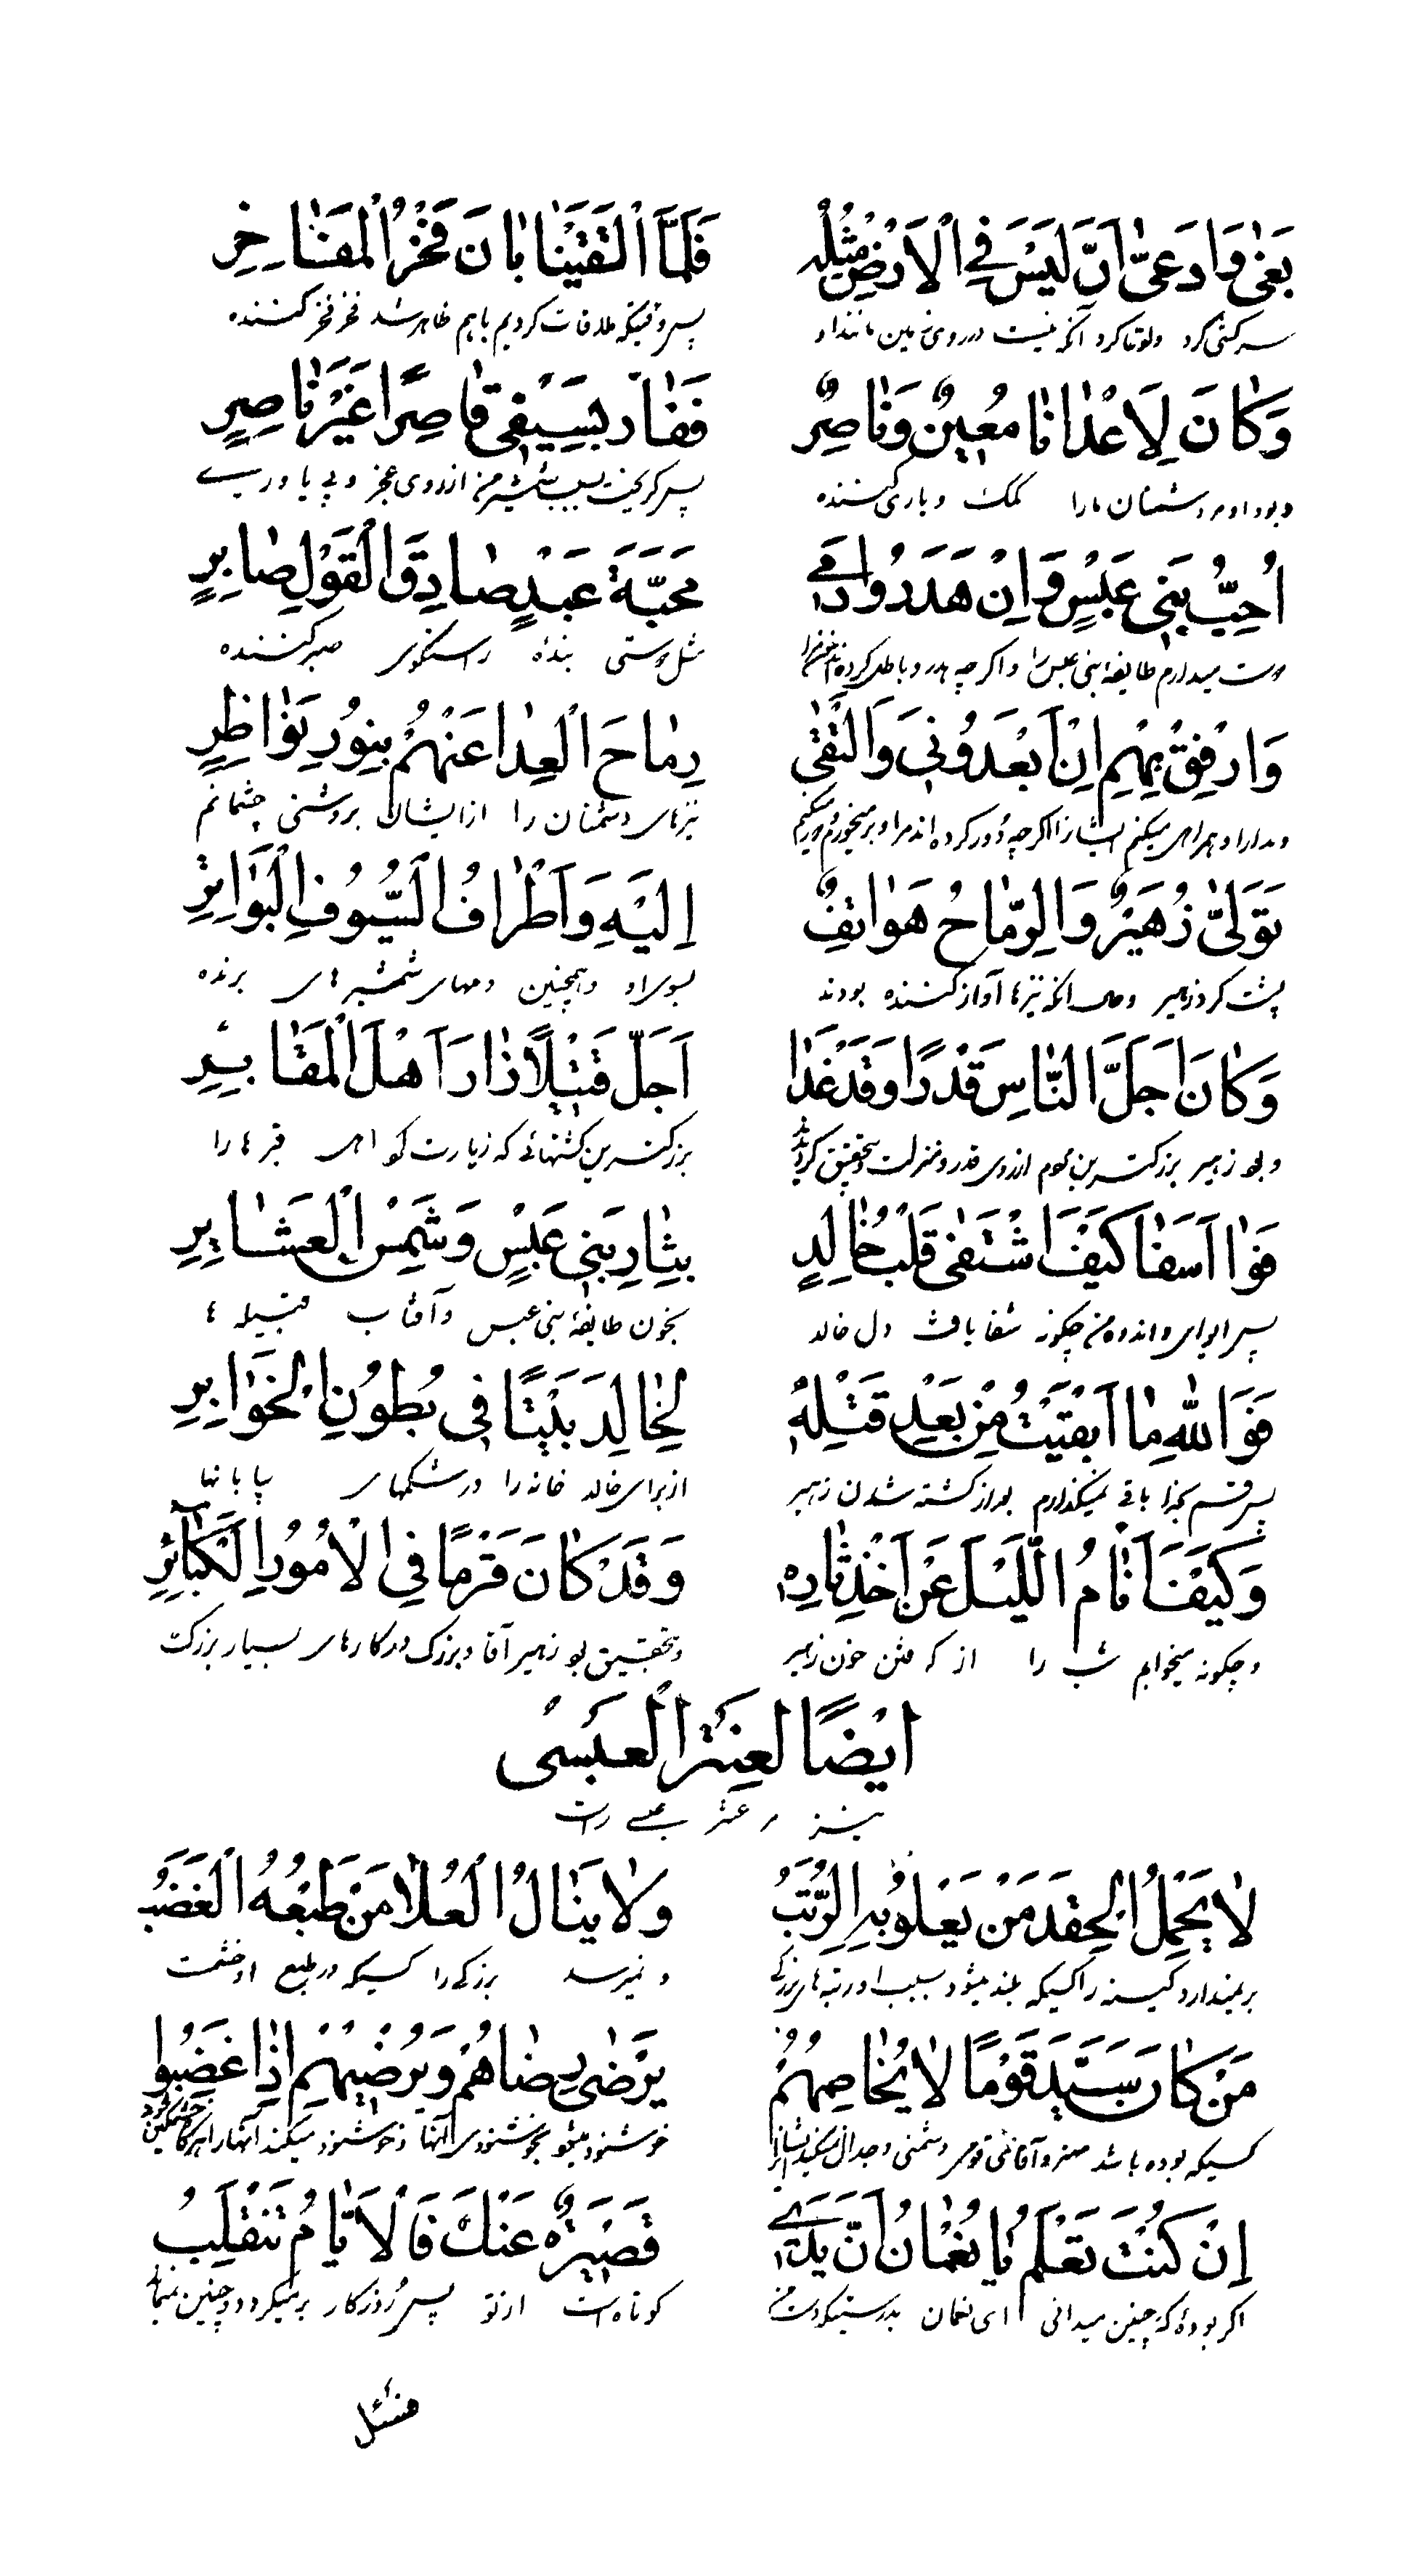 بَغىٰ وَادَعىّٰ اَنَّ لَيْسَ فِى اْلاَرْضِ مِثْلُهُ فَلَمَّا الْتَقَيْنٰا بٰانَ فَخْرُ الْمَفٰاخِرِ
سرکشی کرد و ادعا کرد آنکه نیست در روی زمین مانند او پس وقتیکه ملاقات کردیم باهم ظاهر شد فخر فخر کننده
وَكٰانَ لِاَعْدٰانٰا مُعِينٌ وَنٰاصِرٌ فَفٰارَ بِسَيْفِى قٰاصِرًا غَيْرَ نٰاصِرٍ
و بود او مر دشمنان ما را کمک و یاری کننده پس گریخت بسبب شمشیر من از روی عجز و بی یاوری
اُحِبُّ بَنِى عَبْسٍ وَاِنْ هَدَرُوا دَمِى مَحَبَّةَ عَبْدٍ صٰادِقِ الْقَوْلِ صٰابِرٍ
دوست میدارم طایفه بنی عبس را و اگر چه هدر و باطل کرده‌اند خون مرا مثل دوستی بندهٔ راستگوی صبر کننده
وَارْفِقُ بِهِمْ اِنْ اَبْعَدُونِى وَالْتَقٰى رِمٰاحَ الْعِدٰا عَنْهُمْ بِنُورِ نَوٰاظِرِ
و مدارا و همراهی میکنم ایشانرا اگر چه دور کرده‌اند مرا و بر میخورم نیزهای دشمنان را از ایشان بروشنی چشمانم
تَوَلىّٰ زُهَيْرٌ وَالِرّمٰاحُ هَوٰاتِفٌ اِلَيْهِ وَاَطْرٰافُ السُّيُوفِ الْبَوٰاتِرِ
پشت کرد زهیر و حال آنکه نیزها آواز کننده بودند بسوی او و همچنین دمهای شمشیرهای برنده
وَكٰانَ اَجَلَّ النّٰاسِ قَدْرًا وَقَدْ غَدٰا اَجَلَّ قَتِيْلًا زٰارَ اَهْلَ الْمَقٰابِرِ
و بود زهیر بزرگترین مردم از روی قدر و منزلت و بتحقیق گردید بزرگترین کشتهائی که زیارت کرد اهل قبرها را
فَوٰا اَسَفٰا كَيْفَ اشْتَفىٰ قَلْبُ خٰالِدٍ بِثٰارِ بَنِى عَبْسٍ وَشَمْسِ الْعَشٰايِرِ
پس ای وای و اندوه من چگونه شفا یافت دل خالد بخون طایفهٔ بنی عبس و آفتاب قبیله ها
فَوَاللّٰهِ مٰا اَبْقَيْتُ مِنْ بَعْدِ قَتْلِهِ لِخٰالِدَ بَيْتًا فِى بُطُونِ الْخَوٰابِرِ
پس قسم بخدا باقی نمیگذارم بعد از کشته شدن زهیر از برای خالد خانه را در شکمهای بیابانها
وَكَيْفَ اَنٰامُ اللَّيْلَ عَنْ اَخْذِ ثٰارِهِ وَقَدْ كٰانَ قَرْمًا فِى الْاُمُورِ الْكَبٰآئِرِ
و چگونه میخوابم شب را از گرفتن خون زهیر و بتحقیق بود زهیر آقا و بزرگ در کارهای بسیار بزرگ
ايْضًا لِعَنْتَرَ الْعَبَسىْ
نیز از عنتر عبسی است
لٰا يَحْمِلُ الْحِقْدَ مَنْ يَعْلُو بِهِ الرُّتَبُ وَلٰا يَنٰالُ الْعُلٰا مَنْ طَبْعُهُ الْغَضَبُ
بر نمیدارد کینه را کسیکه بلند میشود بسبب او رتبه های بزرگی و نمیرسد بزرگی را کسیکه در طبع او خشمست
مَنْ كٰانَ سَيِّدَ قَوْمًا لٰا يُخٰاصِمُهُمُ يَرْضٰى رِضٰاهُمْ وَيُرْضِيهِمِ اِذٰا غَضِبُوا
کسیکه بوده باشد مهتر و آقای قومی دشمنی و جدال نمیکند ایشانرا خوشنود میشود بخوشنودی آنها و خوشنود میکند آنها را هرگاه خشمگین شوند
اِنْ كُنْتَ تَعْلَمُ يٰا نُعْمٰانُ اَنَّ يَدِى قَصِيْرَةٌ عَنْكَ فَالْاَيّٰامُ تَنْقَلِبُ
اگر بودهٔ که چنین میدانی ای نعمان بدرستیکه دست من کوتاه است از تو پس روزگار برمیگردد و چنین نمیماند